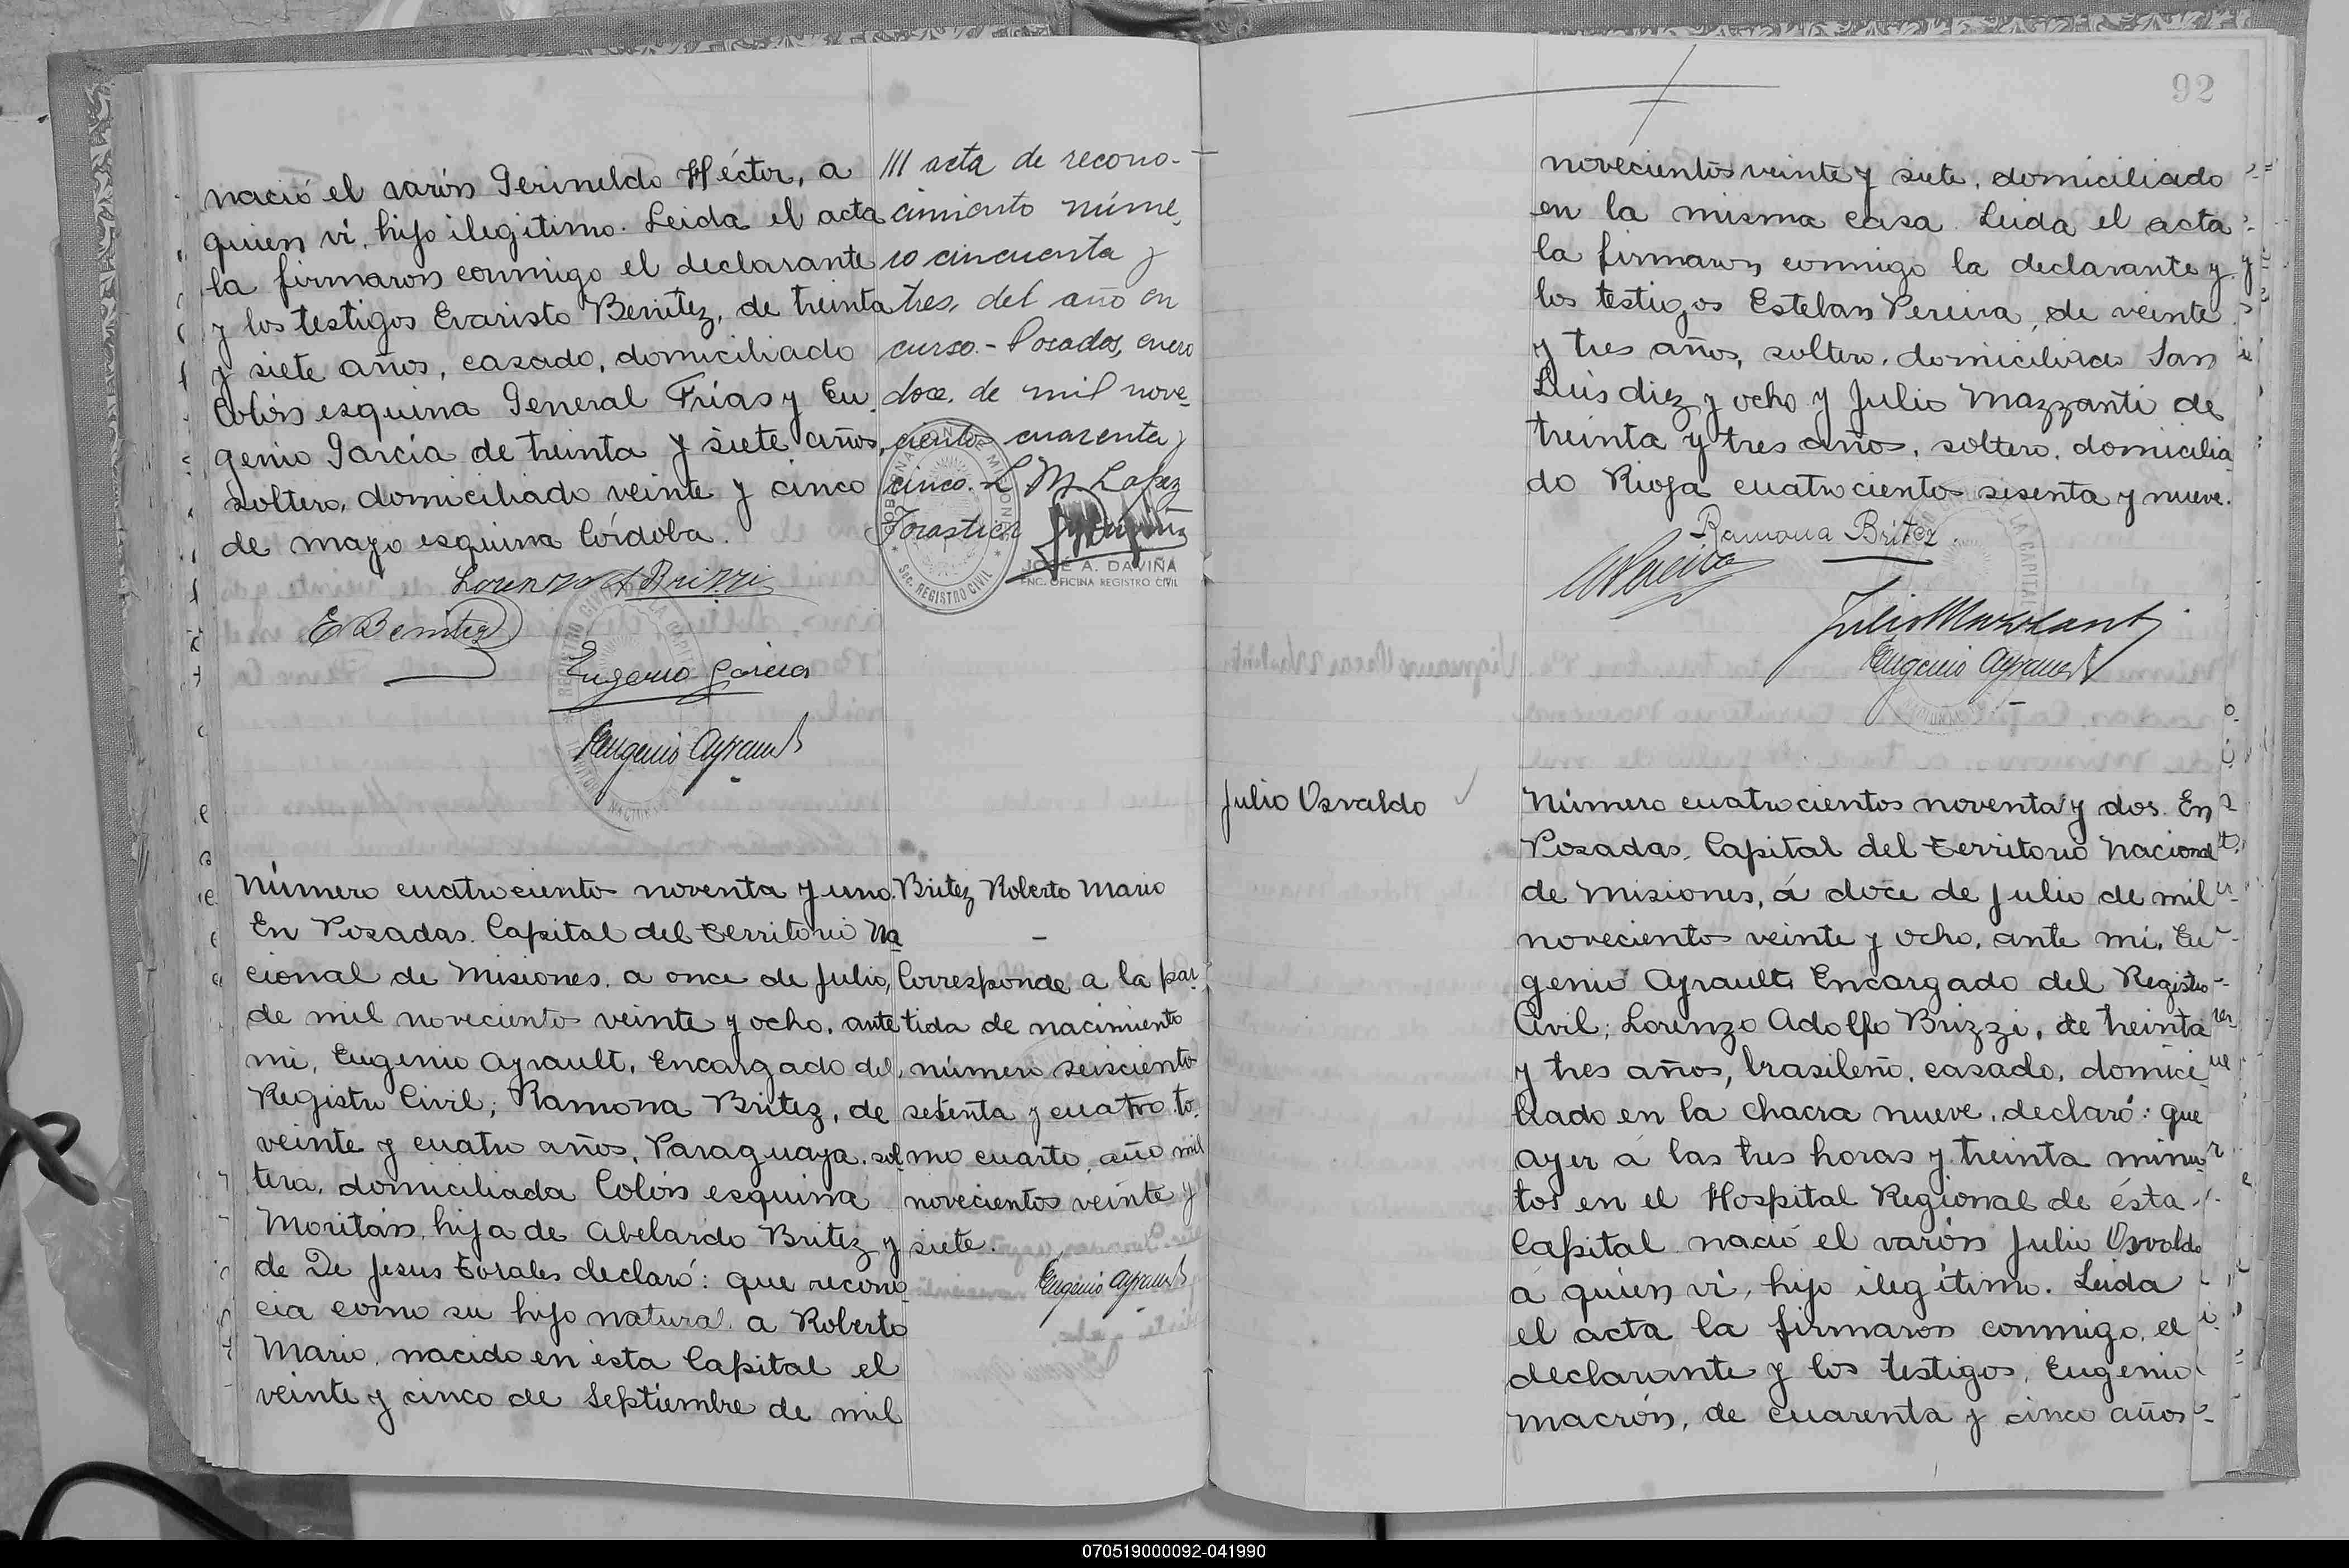 nació el varón Gerineldo Héctor, a
quien vi, hijo ilegítimo. Leida el acta
la firmaron conmigo el declarante
y los testigos Evaristo Benitez, de treinta
y siete años, casado, domiciliado
Colón esquina General Frías y Eu
genio García de treinta y siete años,
soltero, domiciliado veinte y cinco
de mayo esquina Córdoba.
Lorenzo A Brizzi
E Benitez
Eugenio García
Eugenio Ayrault
III acta de recono-
cimiento núme
ro cincuenta y
tres, del año en
curso.- Posadas, enero
doce, de mil nove
cientos cuarenta y
cinco. L M Lopez
Forastier
JOSÉ A. DAVIÑA
ENC. OFICINA REGISTRO CIVIL
GOBERNACION DE MISIONES
SEC. REGISTRO CIVIL
Número cuatrociento noventa y uno.
En Posadas. Capital del territorio Na
cional de Misiones, a once de Julio,
de mil noveciento veinte y ocho, ante
mi, Eugenio Ayrault, Encargado del
Registro Civil; Ramona Britez, de
veinte y cuatro años, Paraguaya, sol
tera, domiciliada Colón esquina
Moritán, hija de Abelardo Britez y
de De Jesus Torales declaró: que recono
cia como su hijo natural a Roberto
Mario, nacido en ésta Capital el
veinte y cinco de Septiembre de mil
Britez Roberto Mario
-
Corresponde a la par
tida de nacimiento
número seisciento
setenta y cuatro. to
mo cuarto, año mil
novecientos veinte y
siete.
Eugenio Ayrault
92
novecientos veinte y siete, domiciliado
en la misma casa. Leida el acta
la firmaron conmigo la declarante y
los testigos Esteban Pereira, de veinte
y tres años, soltero, domiciliado San
Luis diez y ocho y Julio Mazzanti de
treinta y tres años, soltero, domicilia
do Rioja cuatrocientos sesenta y nueve.
Ramona Britez
Pereira
Julio Mazzanti
Eugenio Ayrault
Julio Osvaldo
Número cuatrocientos noventa y dos. En
Posadas, Capital del territorio Nacional
de Misiones, á doce de Julio de mil
noveciento veinte y ocho, ante mi, Eu
genio Ayrault, Encargado del Registro
Civil; Lorenzo Adolfo Brizzi, de treinta
y tres años, brasileño, casado, domici
liado en la chacra nueve, declaró: que
ayer á las tres horas y treinta minu
tos en el Hospital Regional de ésta
Capital nació el varón Julio Osvaldo
á quien vi, hijo ilegítimo. Leida
el acta la firmaron conmigo, el
declarante y los testigos, Eugenio
Macrón, de cuarenta y cinco años
070519000092-041990